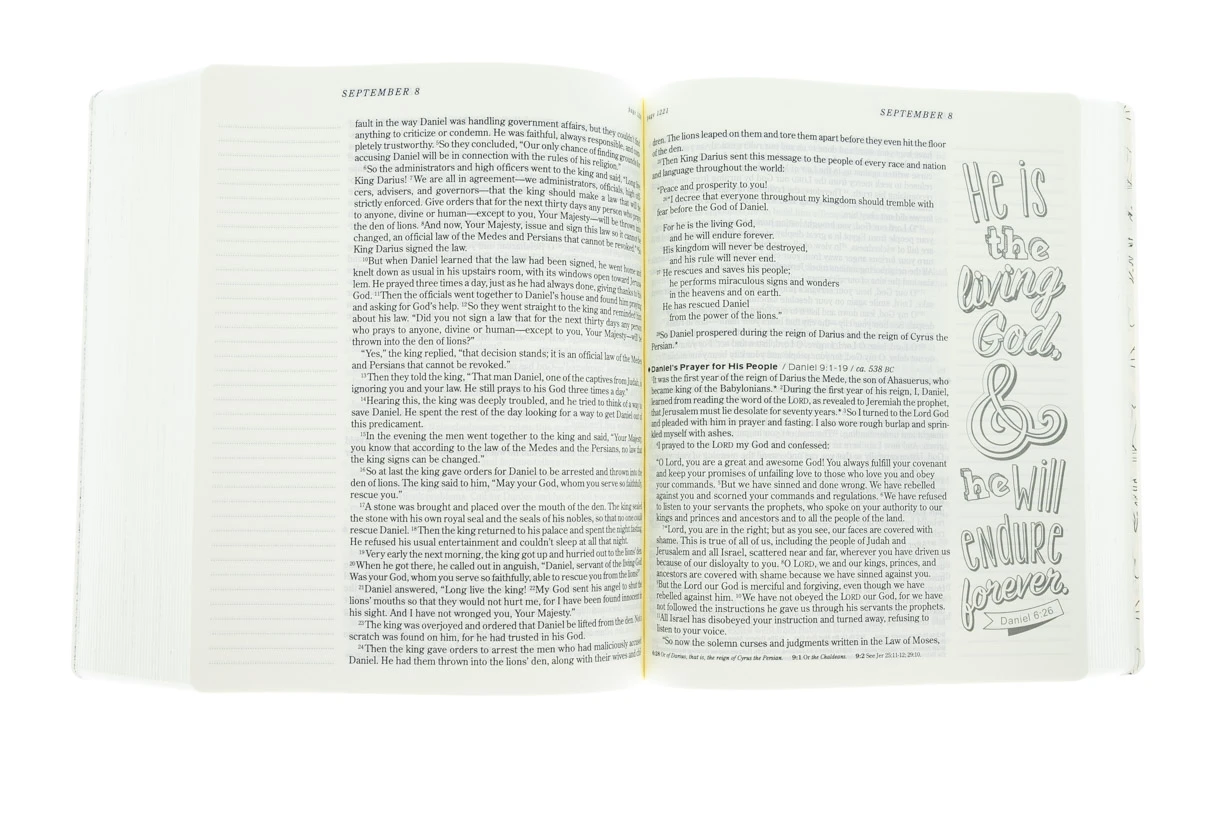 SEPTEMBER 8
fault in the way Daniel was handling government affairs, but they couldn't find
anything to criticize or condemn. He was faithful, always responsible, and com-
pletely trustworthy. ⁵So they concluded, “Our only chance of finding grounds for
accusing Daniel will be in connection with the rules of his religion.”
⁶So the administrators and high officers went to the king and said, “Long live
King Darius! ⁷We are all in agreement—we administrators, officials, high offi-
cers, advisers, and governors—that the king should make a law that will be
strictly enforced. Give orders that for the next thirty days any person who prays
to anyone, divine or human—except to you, Your Majesty—will be thrown into
the den of lions. ⁸And now, Your Majesty, issue and sign this law so it cannot be
changed, an official law of the Medes and Persians that cannot be revoked.” ⁹So
King Darius signed the law.
¹⁰But when Daniel learned that the law had been signed, he went home and
knelt down as usual in his upstairs room, with its windows open toward Jerusa-
lem. He prayed three times a day, just as he had always done, giving thanks to his
God. ¹¹Then the officials went together to Daniel's house and found him praying
and asking for God's help. ¹²So they went straight to the king and reminded him
about his law. “Did you not sign a law that for the next thirty days any person
who prays to anyone, divine or human—except to you, Your Majesty—will be
thrown into the den of lions?”
“Yes,” the king replied, “that decision stands; it is an official law of the Medes
and Persians that cannot be revoked.”
¹³Then they told the king, “That man Daniel, one of the captives from Judah, is
ignoring you and your law. He still prays to his God three times a day.”
¹⁴Hearing this, the king was deeply troubled, and he tried to think of a way to
save Daniel. He spent the rest of the day looking for a way to get Daniel out of
this predicament.
¹⁵In the evening the men went together to the king and said, “Your Majesty,
you know that according to the law of the Medes and the Persians, no law that
the king signs can be changed.”
¹⁶So at last the king gave orders for Daniel to be arrested and thrown into the
den of lions. The king said to him, “May your God, whom you serve so faithfully,
rescue you.”
¹⁷A stone was brought and placed over the mouth of the den. The king sealed
the stone with his own royal seal and the seals of his nobles, so that no one could
rescue Daniel. ¹⁸Then the king returned to his palace and spent the night fasting.
He refused his usual entertainment and couldn't sleep at all that night.
¹⁹Very early the next morning, the king got up and hurried out to the lions' den.
²⁰When he got there, he called out in anguish, “Daniel, servant of the living God!
Was your God, whom you serve so faithfully, able to rescue you from the lions?”
²¹Daniel answered, “Long live the king! ²²My God sent his angel to shut the
lions' mouths so that they would not hurt me, for I have been found innocent in
his sight. And I have not wronged you, Your Majesty.”
²³The king was overjoyed and ordered that Daniel be lifted from the den. Not a
scratch was found on him, for he had trusted in his God.
²⁴Then the king gave orders to arrest the men who had maliciously accused
Daniel. He had them thrown into the lions' den, along with their wives and chil-
page 1221
SEPTEMBER 8
dren. The lions leaped on them and tore them apart before they even hit the floor
of the den.
²⁵Then King Darius sent this message to the people of every race and nation
and language throughout the world:
“Peace and prosperity to you!
²⁶“I decree that everyone throughout my kingdom should tremble with
fear before the God of Daniel.
For he is the living God,
and he will endure forever.
His kingdom will never be destroyed,
and his rule will never end.
²⁷ He rescues and saves his people;
he performs miraculous signs and wonders
in the heavens and on earth.
He has rescued Daniel
from the power of the lions.”
²⁸So Daniel prospered during the reign of Darius and the reign of Cyrus the
Persian.*
Daniel's Prayer for His People / Daniel 9:1-19 / ca. 538 BC
¹It was the first year of the reign of Darius the Mede, the son of Ahasuerus, who
became king of the Babylonians.* ²During the first year of his reign, I, Daniel,
learned from reading the word of the LORD, as revealed to Jeremiah the prophet,
that Jerusalem must lie desolate for seventy years.* ³So I turned to the Lord God
and pleaded with him in prayer and fasting. I also wore rough burlap and sprin-
kled myself with ashes.
⁴I prayed to the LORD my God and confessed:
“O Lord, you are a great and awesome God! You always fulfill your covenant
and keep your promises of unfailing love to those who love you and obey
your commands. ⁵But we have sinned and done wrong. We have rebelled
against you and scorned your commands and regulations. ⁶We have refused
to listen to your servants the prophets, who spoke on your authority to our
kings and princes and ancestors and to all the people of the land.
⁷“Lord, you are in the right; but as you see, our faces are covered with
shame. This is true of all of us, including the people of Judah and
Jerusalem and all Israel, scattered near and far, wherever you have driven us
because of our disloyalty to you. ⁸O LORD, we and our kings, princes, and
ancestors are covered with shame because we have sinned against you.
⁹But the Lord our God is merciful and forgiving, even though we have
rebelled against him. ¹⁰We have not obeyed the LORD our God, for we have
not followed the instructions he gave us through his servants the prophets.
¹¹All Israel has disobeyed your instruction and turned away, refusing to
listen to your voice.
“So now the solemn curses and judgments written in the Law of Moses,
6:28 Or of Darius, that is, the reign of Cyrus the Persian. 9:1 Or the Chaldeans. 9:2 See Jer 25:11-12; 29:10.
He is
the
living
God,
&
he will
endure
forever.
Daniel 6:26